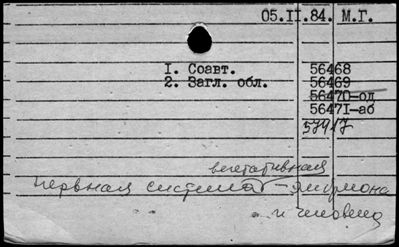 05.II.84. М.Г.
I. Соавт. 56468
2. Загл. обл. 56469
56470-од
56471-аб
57917
вегетативная
нервная система эмбриона
и человека